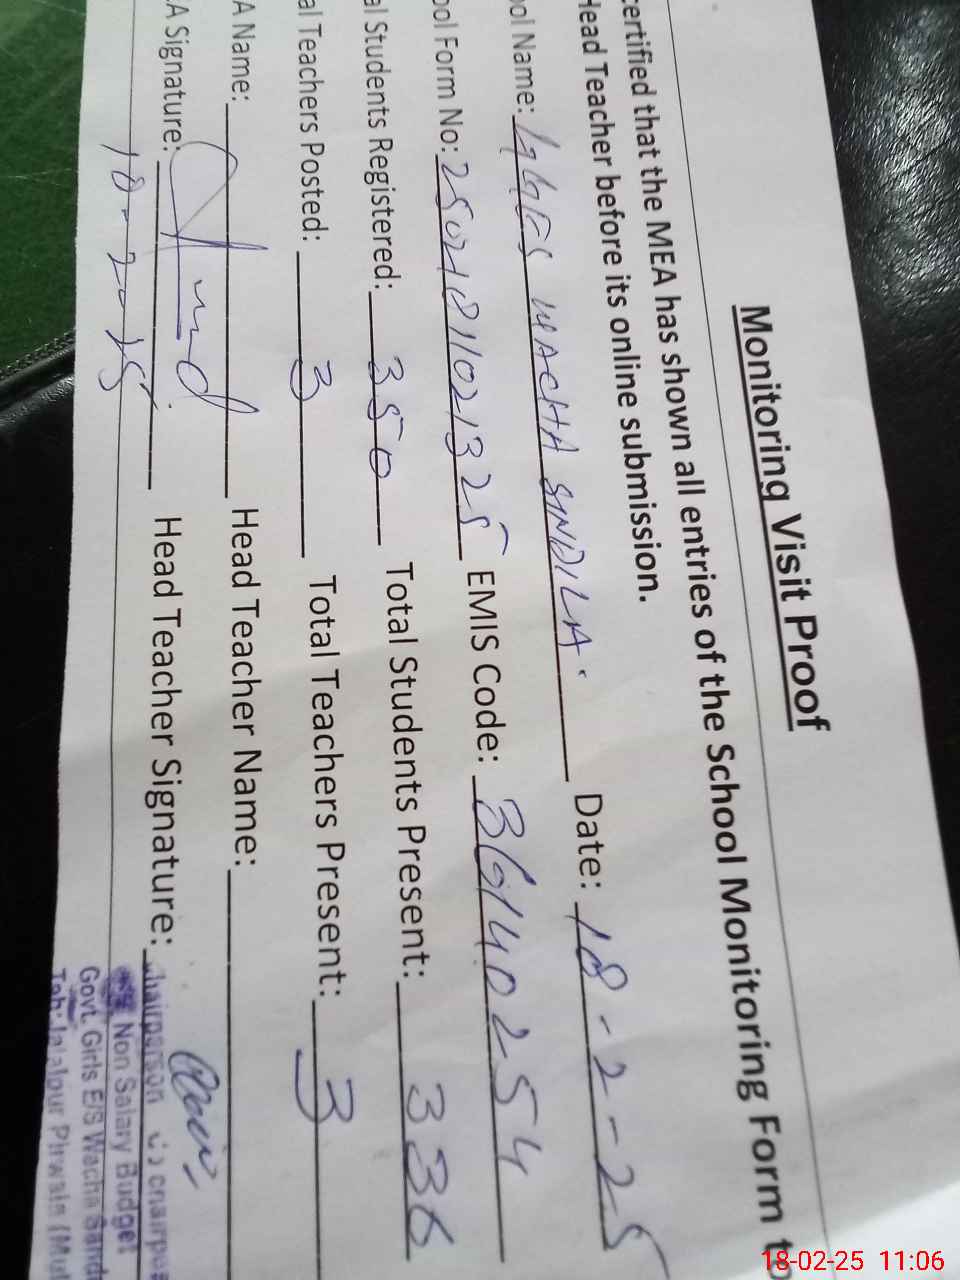 Monitoring Visit Proof
certified that the MEA has shown all entries of the School Monitoring Form to
Head Teacher before its online submission.
ool Name: GGES WACHA SINDILA. Date: 18-2-25
ool Form No: 25021811021325 EMIS Code: 36140254
al Students Registered: 350 Total Students Present: 336
al Teachers Posted: 3 Total Teachers Present: 3
A Name: Head Teacher Name:
A Signature: Head Teacher Signature:
18-2-25
Chairperson
Non Salary Budget
Govt. Girls E/S Wacha Sandi
Teh: Jalalpur Pirwala (Mul
18-02-25 11:06